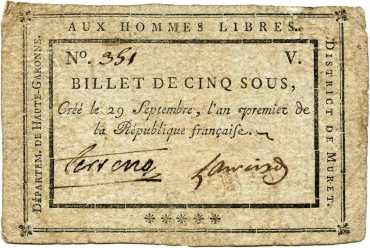 AUX HOMMES LIBRES.
DÉPARTEM. DE HAUTE-GARONNE.
No. 351 V.
BILLET DE CINQ SOUS,
Créé le 29 Septembre, l'an premier de
la République française.
DISTRICT DE MURET.